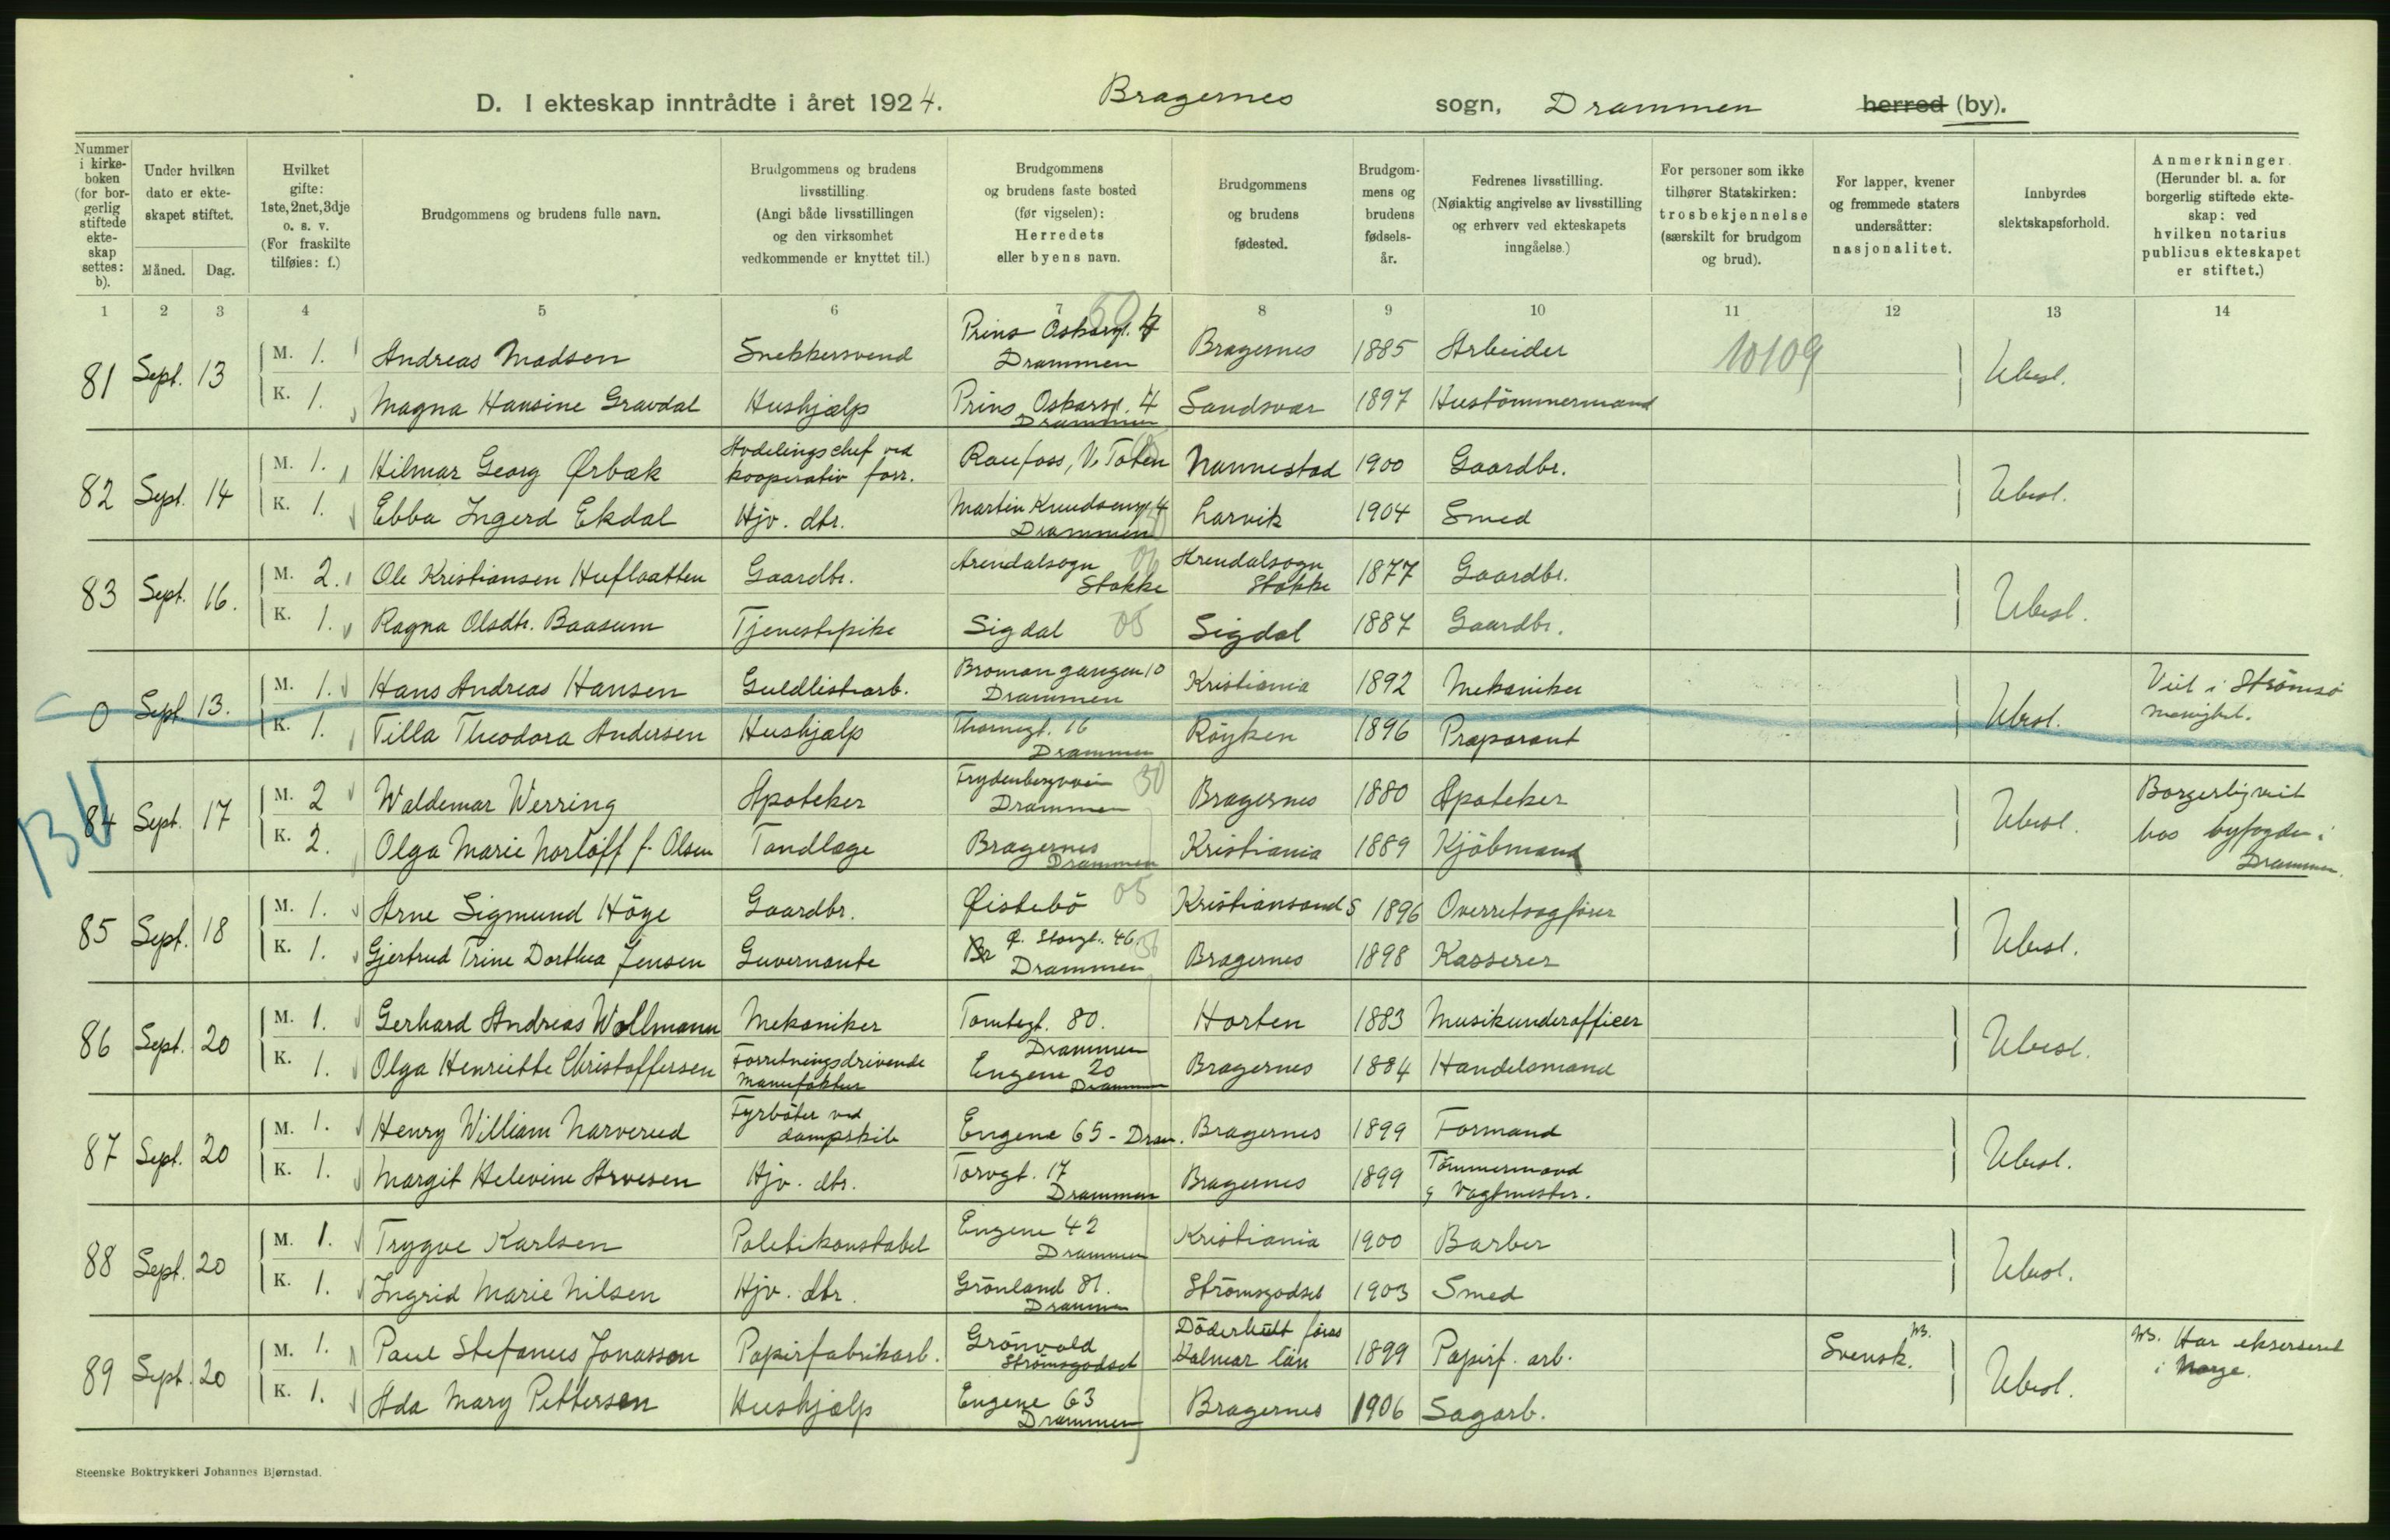 D. I ekteskap inntrådte i året 1924. Bragernes sogn, Drammen herred (by).
Nummer i kirkeboken (for borgerlig stiftede ekteskap settes: b).
Under hvilken dato er ekteskapet stiftet.
Måned. Dag.
Hvilket gifte: 1ste, 2net, 3dje o. s. v. (For fraskilte tilføies: f.)
Brudgommens og brudens fulle navn.
Brudgommens og brudens livsstilling. (Angi både livsstillingen og den virksomhet vedkommende er knyttet til.)
Brudgommens og brudens faste bosted (før vigselen): Herredets eller byens navn.
Brudgommens og brudens fødested.
Brudgommens og brudens fødselsår.
Fedrenes livsstilling. (Nøiaktig angivelse av livsstilling og erhverv ved ekteskapets inngåelse.)
For personer som ikke tilhører Statskirken: trosbekjennelse (særskilt for brudgom og brud).
For lapper, kvener og fremmede staters undersåtter: nasjonalitet.
Innbyrdes slektskapsforhold.
Anmerkninger. (Herunder bl. a. for borgerlig stiftede ekteskap: ved hvilken notarius publicus ekteskapet er stiftet.)
1 2 3 4 5 6 7 8 9 10 11 12 13 14
81 Sept. 13 M. 1. Andreas Madsen Snekkersvend Prins Oskarsgt. 4 Drammen Bragernes 1885 Arbeider 10109 Ubesl.
K. 1. Magna Hansine Gravdal Hushjælp Prins Oskarsg. 4 Drammen Sandsvær 1897 Hustömmermand
82 Sept. 14 M. 1. Hilmar Georg Ørbæk Avdelingschef ved kooperativ forr. Raufoss, V. Toten Nannestad 1900 Gaardbr. Ubesl.
K. 1. Ebba Ingerd Ekdal Hjv. dtr. Martin Knudsensgt 4 Drammen Larvik 1904 Smed
83 Sept. 16. M. 2. Ole Kristiansen Huflaatten Gaardbr. Arendalsogn Stokke 06 Arendalsogn Stokke 1877 Gaardbr. Ubesl.
K. 1. Ragna Olsdtr. Baasum Tjenestepike Sigdal 05 Sigdal 1887 Gaardbr.
0 Sept. 13. M. 1. Hans Andreas Hansen Guldlistarb. Bromangangen 10 Drammen Kristiania 1892 Mekaniker Ubesl. Viet i Strömsö menighet.
K. 1. Tilla Theodora Andersen Hushjælp Thornegt. 16 Drammen Röyken 1896 Præparant
84 Sept. 17 M. 2 Waldemar Werring Apoteker Frydenbergveien Drammen 30 Bragernes 1880 Apoteker Ubesl. Borgerlig viet hos byfogden i Drammen.
K. 2. Olga Marie Norløff f. Olsen Tandlæge Bragernes Drammen Kristiania 1889 Kjöbmand
85 Sept. 18 M. 1. Arne Sigmund Höge Gaardbr. Øistebö 05 Kristiansand S 1896 Overretssagförer Ubesl.
K. 1. Gjertrud Trine Dorthea Jensen Guvernante Ø. Storgt. 46. Drammen Bragernes 1898 Kasserer
86 Sept. 20 M. 1. Gerhard Andreas Wollmann Mekaniker Tomtegt. 80. Drammen Horten 1883 Musikunderofficer Ubesl.
K. 1. Olga Henriette Christoffersen Forretningsdrivende Manufaktur Engene 20 Drammen Bragernes 1884 Handelsmand
87 Sept. 20 M. 1. Henry William Narverud Fyrböter ved dampskib Engene 65 - Dram. Bragernes 1899 Formand Ubesl.
K. 1. Margit Helevine Arvesen Hjv. dtr. Torvgt. 17 Drammen Bragernes 1899 Tömmermand & Vagtmester.
88 Sept. 20 M. 1. Trygve Karlsen Politikonstabel Engene 42 Drammen Kristiania 1900 Barber Ubesl.
K. 1. Ingrid Marie Nilsen Hjv. dtr. Grönland 81. Drammen Strömsgodset 1903 Smed
89 Sept. 20 M. 1. Paul Stefanus Jonasson Papirfabrikarb. Grönvold Strömsgodset Döderhult förs Kalmar län 1899 Papirf. arb. Svensk. Ubesl. Har eksersert i Norge.
K. 1. Ada Mary Pettersen Hushjælp Engene 63 Drammen Bragernes 1906 Sagarb.
Steenske Boktrykkeri Johannes Bjørnstad.